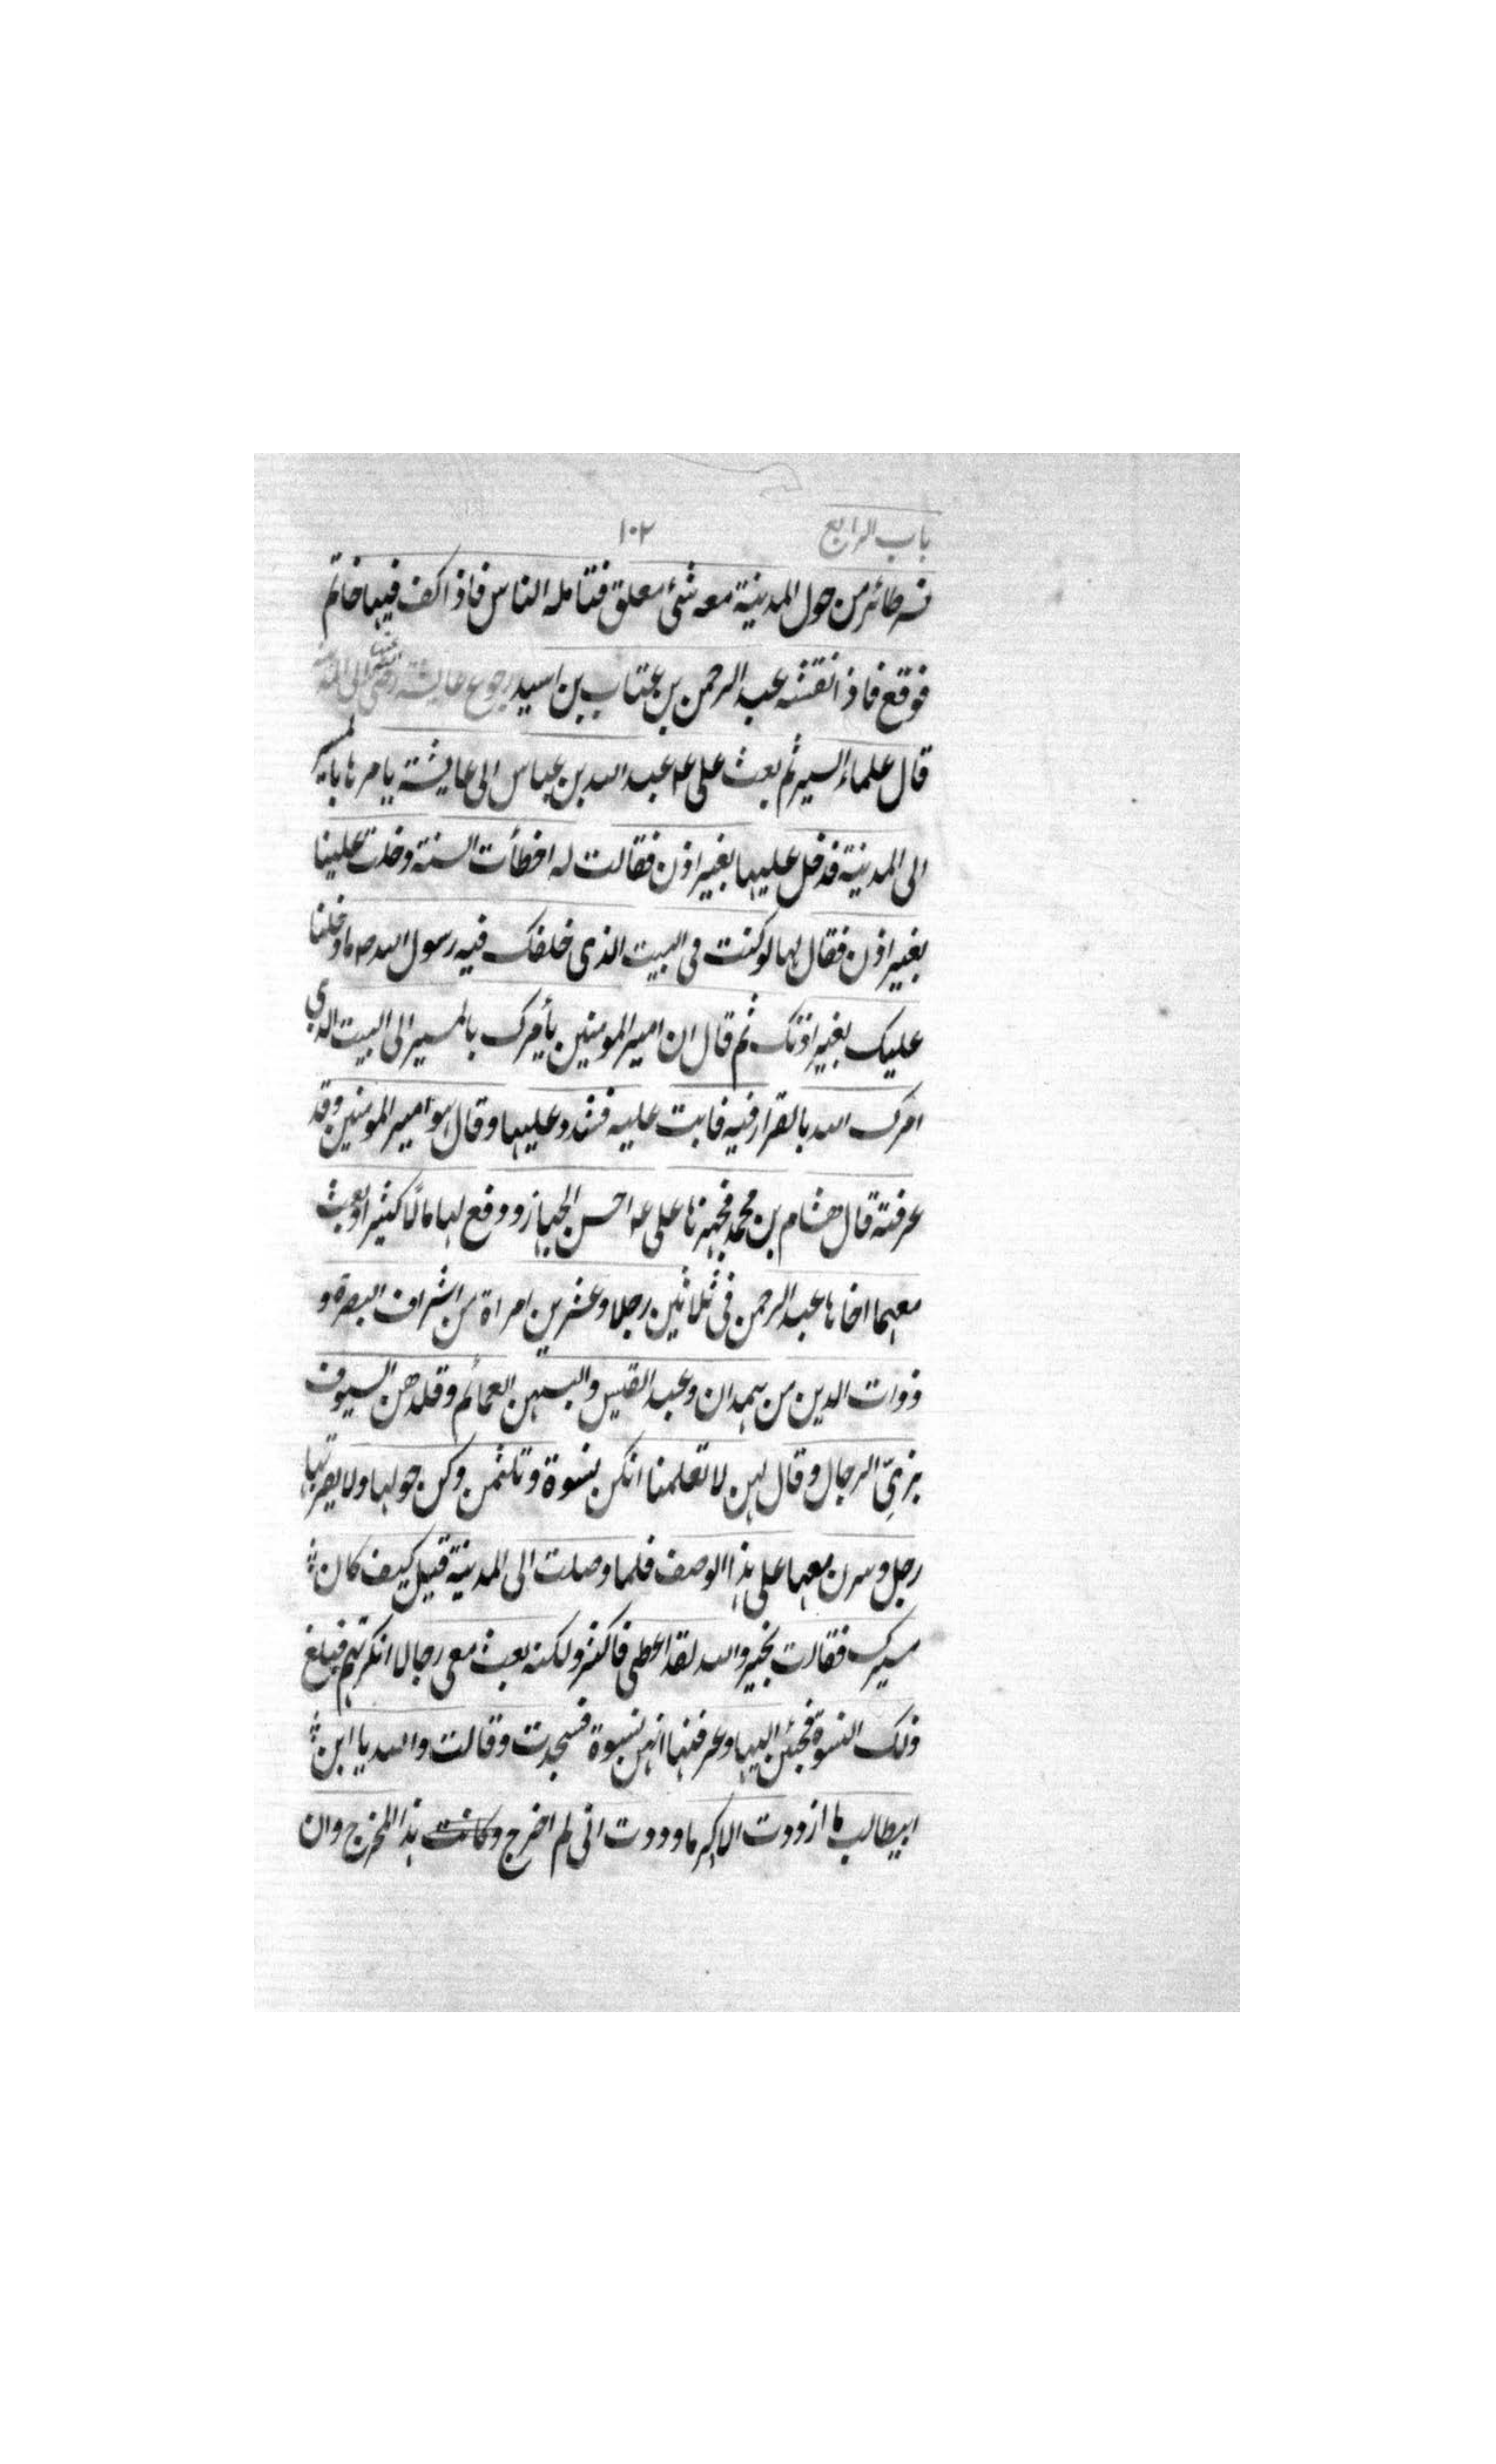 باب الرابع ١٠٢
نسر طائر من حول المدينة معه شئ معلق فتامله الناس فاذا كف فيها خاتم
فوقع فاذا نقشه عبد الرحمن بن عتاب بن اسيد رجوع عايشة الى المدينة
قال علماء السير ثم بعث على ع عبد الله بن عباس الى عايشة يامرها بالمسير
الى المدينة فدخل عليها بغير اذن فقالت له اخطأت السنة دخلت علينا
بغير اذن فقال لها لو كنت فى البيت الذى خلفك فيه رسول الله ص ما دخلنا
عليك بغير اذنك ثم قال ان امير المومنين يأمرك بالمسير الى البيت الذي
امرك الله بالقرار فيه فابت عليه فشدد عليها وقال هو امير المومنين وقد
عرفته قال هشام بن محمد فجهزها على ع احسن الجهاز ودفع لها مالًا كثيرا وبعث
معهما اخاها عبد الرحمن فى ثلاثين رجلا وعشرين امراة من اشراف البصرة و
ذوات الدين من همدان وعبد القيس والبسهن العمائم وقلدهن السيوف
بزىّ الرجال وقال لهن لا تعلمنا انكن نسوة وتلثمن وكن حولها ولا يقربنها
رجل وسرن معها على هذا الوصف فلما وصلت الى المدينة قيل كيف كان
مسيرك فقالت بخير والله لقد اعطى فاكثر ولكنه بعث معى رجالا انكرتهم فبلغ
ذلك النسوة فجئن اليها وعرفنها انهن نسوة فسجدت وقالت والله يا ابن
ابيطالب ما ازددت الا كرما وددت انى لم اخرج وكانت هذا المخرج وان